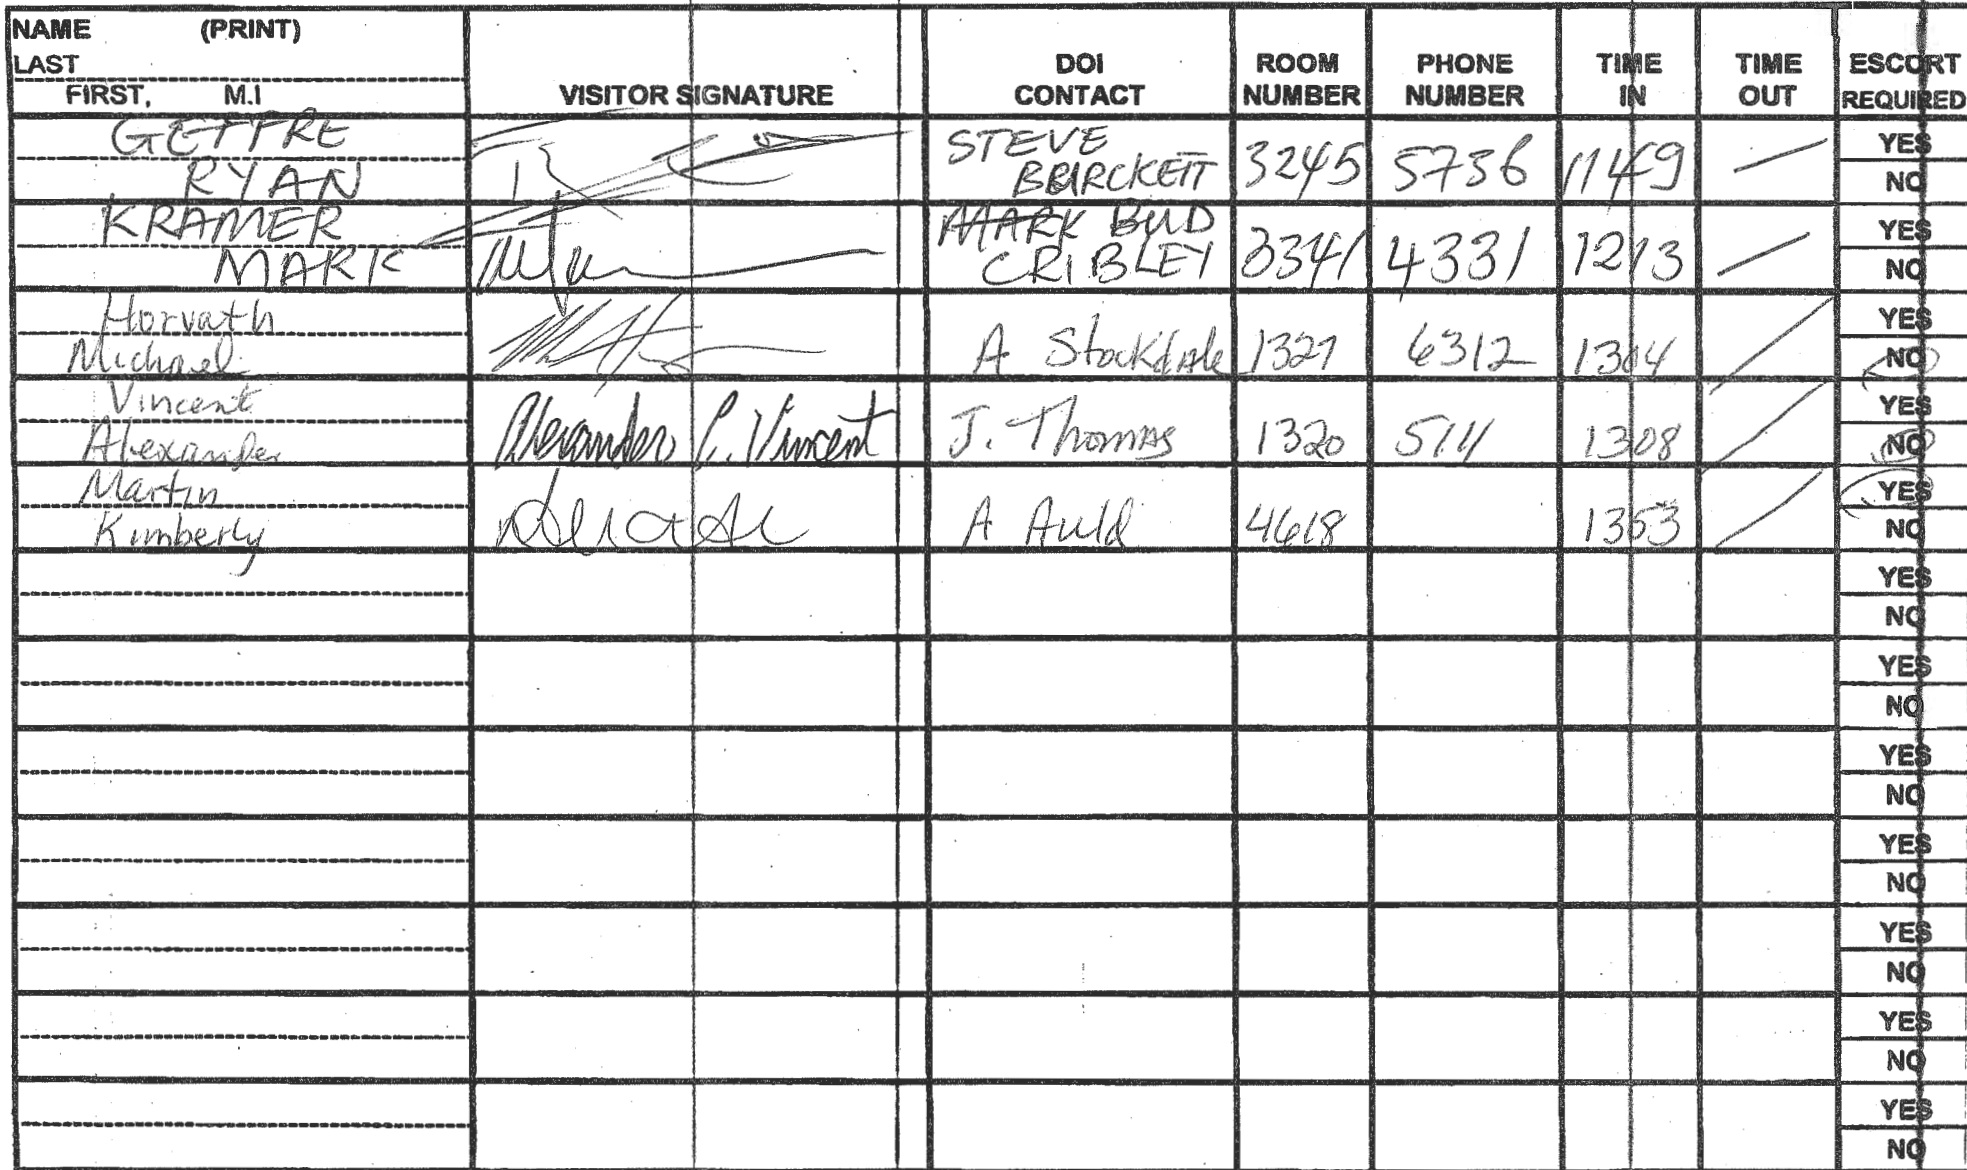 NAME (PRINT)
LAST
FIRST, M.I
VISITOR SIGNATURE
DOI
CONTACT
ROOM
NUMBER
PHONE
NUMBER
TIME
IN
TIME
OUT
ESCORT
REQUIRED
RYAN
STEVE
3245 5736 1149
YES
NO
KRAMER
MARK
MARK BUD
CRIBLEY
3341 4331 1213
YES
NO
Horvath
Michael
A Stockdale 1327 6312 1304
YES
NO
Vincent
Alexander
Alexander P. Vincent
J. Thomas 1320 1308
YES
NO
Martin
Kimberly
A Auld 4618 1353
YES
NO
YES
NO
YES
NO
YES
NO
YES
NO
YES
NO
YES
NO
YES
NO